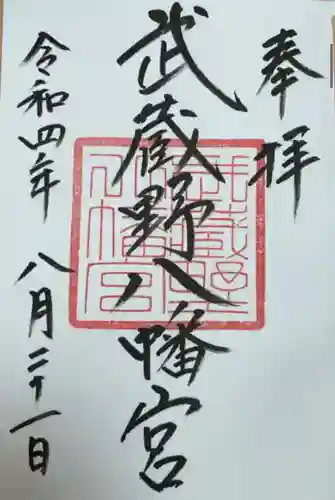 奉拝
武蔵野八幡宮
令和四年 八月二十一日
武蔵野
八幡宮